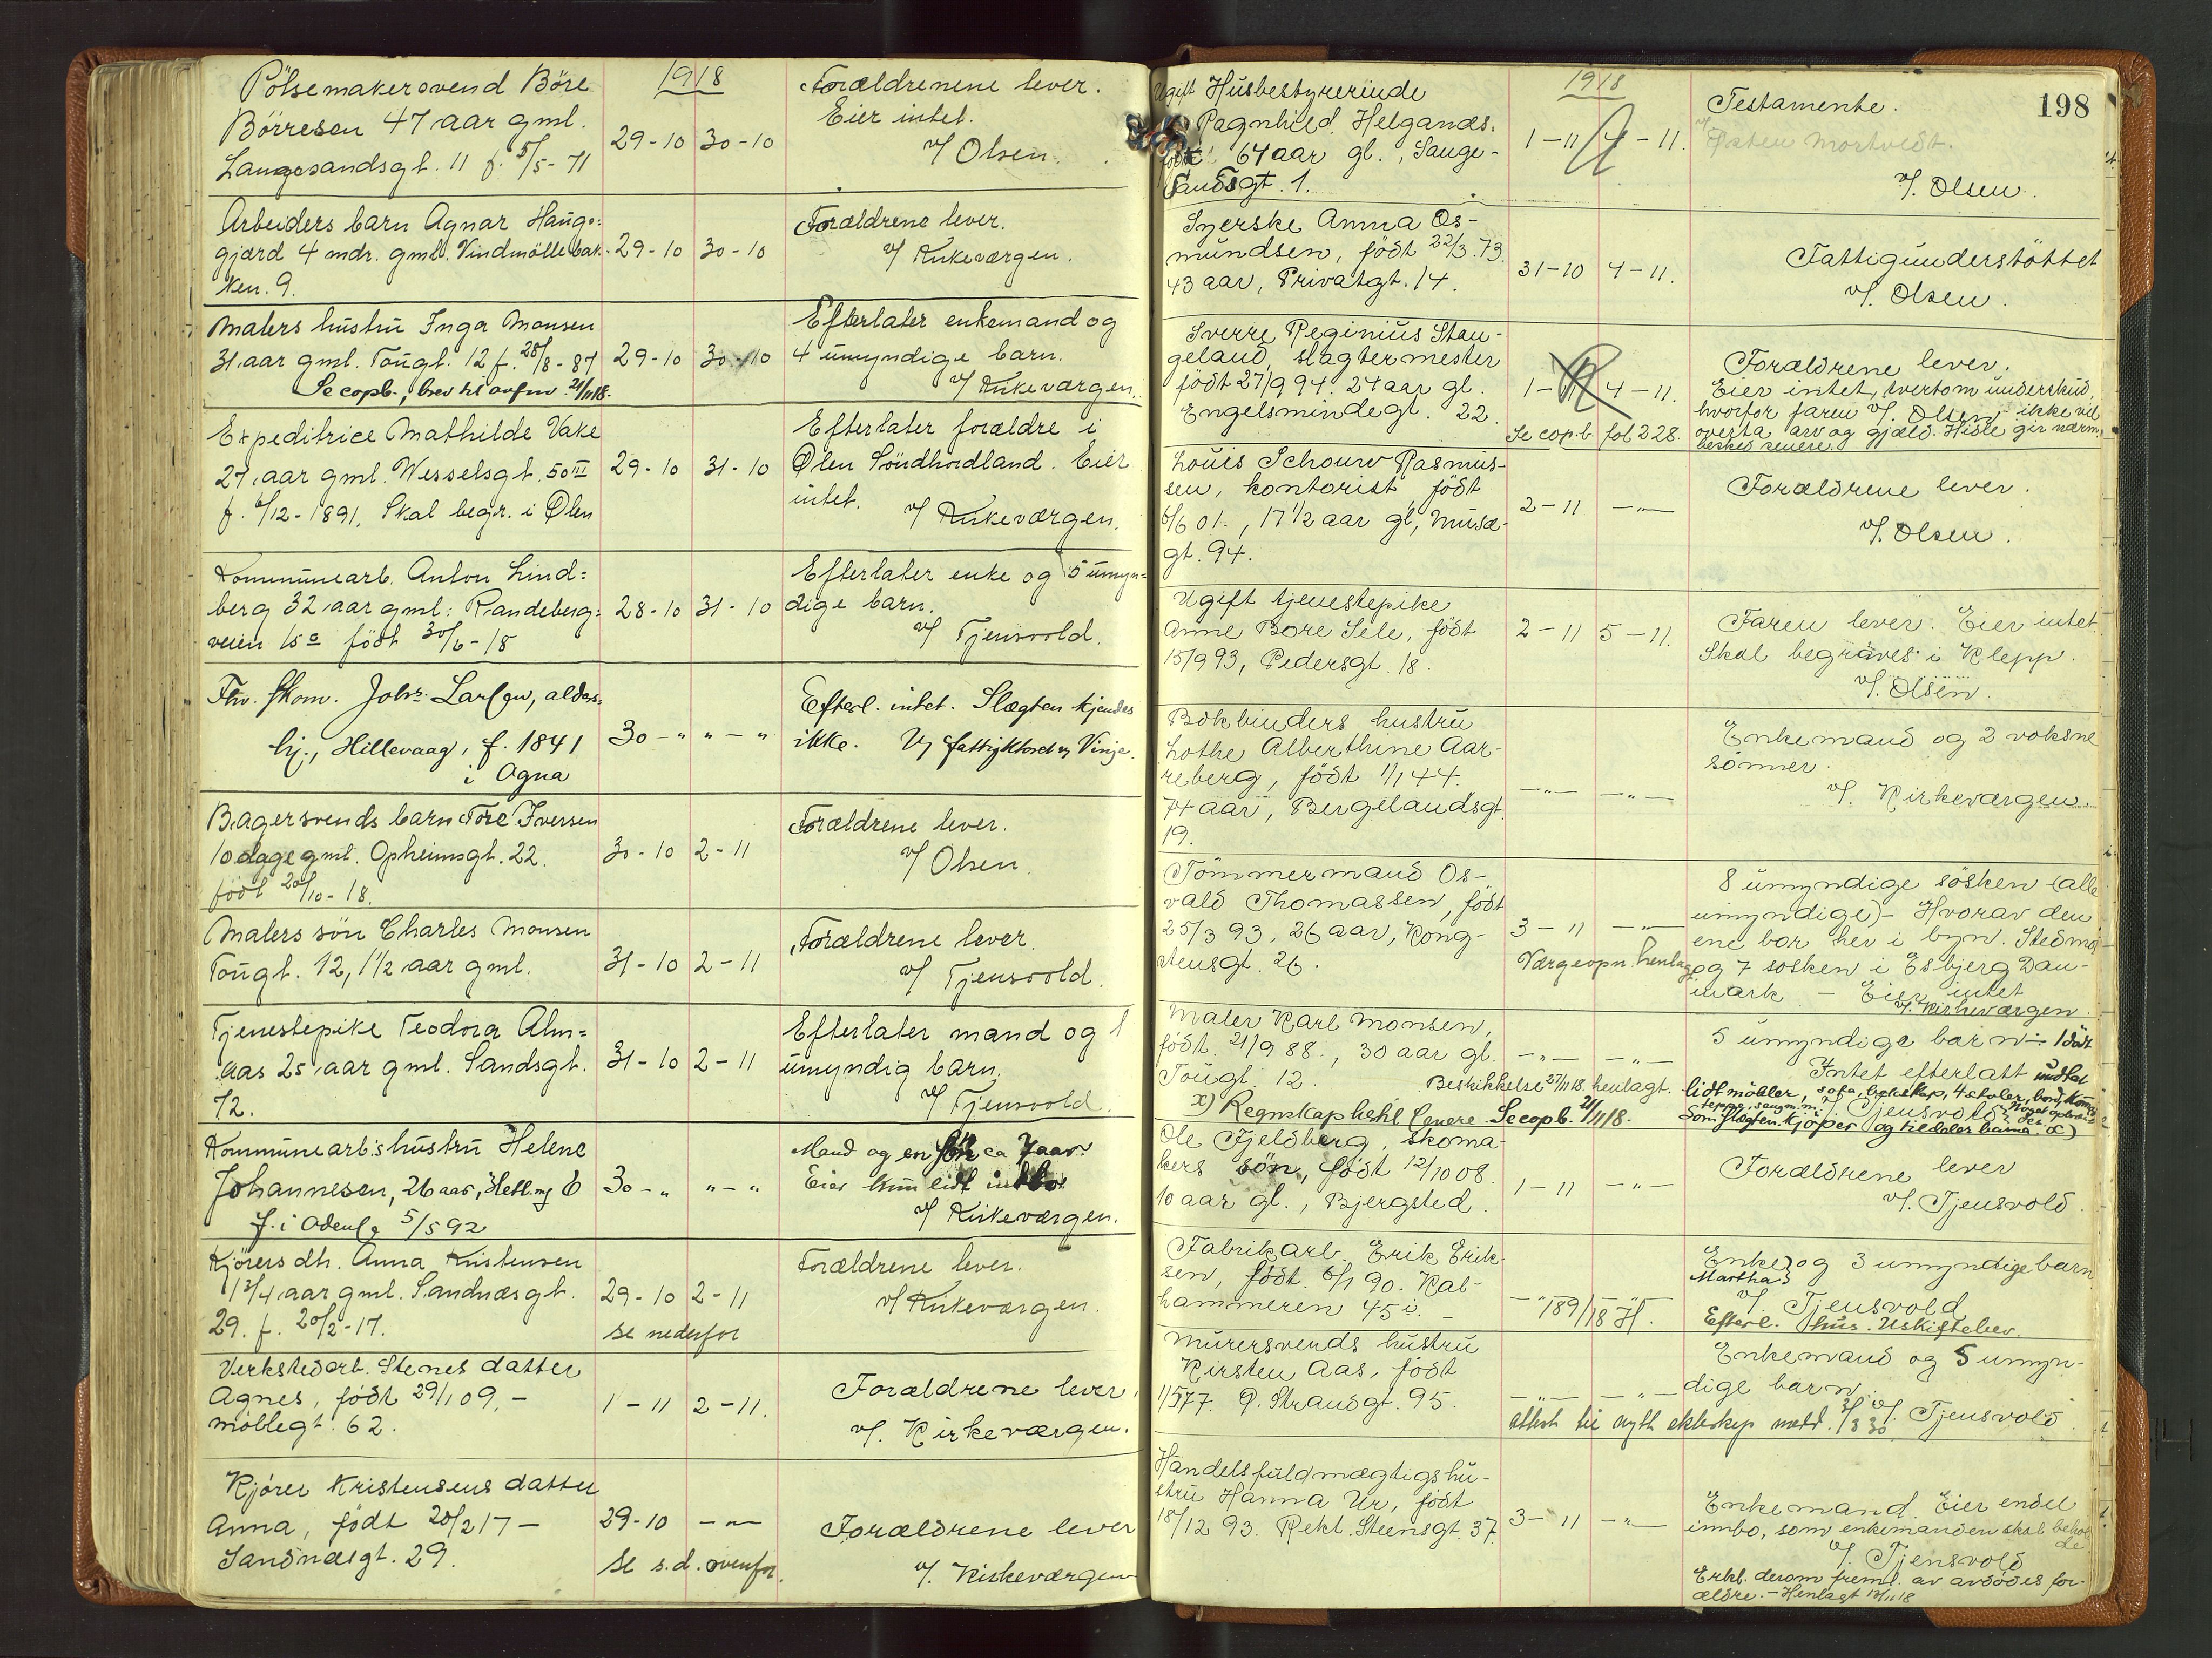 1918
Pölsemakersvend Böre
Börresen 47 aar gml.
Langesandsgt. 11 f. 5/5-71
29-10 30-10
Forældrenene lever.
Eier intet.
v/ Olsen.
Arbeiders barn Agnar Hauge=
gjærd 4 mdr. gml. Vindmöllebak-
ken. 9.
29-10 30-10
Forældrene lever.
v/ Kirkeværgen.
Malers hustru Inga Monsen
31 aar gml. Tougt. 12 f. 28/8-87
29-10 30-10
Se copb., brev til 21/11 18.
Efterlater enkemand og
4 umyndige barn.
v/ Kirkeværgen.
Expeditrice Mathilde Vake
27 aar gml. Wesselsgt. 50 III
f. 6/12-1891. Skal begr. i Ølen
29-10 31-10
Efterlater forældre i
Ølen Söndhordland. Eier
intet.
v/ Kirkeværgen.
Kommunearb. Anton Lind=
berg 32 aar gml: Randeberg=
veien 15 a födt 30/6-18
28-10 31-10
Efterlater enke og 5 umyn=
dige barn.
v/ Tjensvold.
Fhv. skom. Johs. Larsen, alders=
hj., Hillevaag, f. 1841
i Ogna
30 - " " - "
Efterl. intet. Slægten kjendes
ikke. v/ fattigktoret v/ Vinje.
Bagersvends barn Tore Iversen
10 dage gml. Opheimsgt. 22.
födt 20/10-18.
30-10 2-11
Forældrene lever.
v/ Olsen.
Malers sön Charles Monsen
Tougt. 12, 1 1/2 aar gml.
31-10 2-11
Forældrene lever.
v/ Tjensvold.
Tjenestepike Teodora Alm=
aas 25 aar gml. Sandsgt.
72.
31-10 2-11
Efterlater mand og 1
umyndig barn.
v/ Tjensvold.
Kommunearb's hustru Helene
Johannesen, 26 aar,
f. i 5/5 92
30 - " " - "
Mand og en ca 7 aar.
Eier kun lidt indbo
v/ Kirkeværgen.
Kjörers dtr. Anna Kristensen
1 3/4 aar gml. Sandnæsgt.
29. f. 20/2-17.
29-10 2-11
se nedenfor
Forældrene lever.
v/ Kirkeværgen.
Verkstedarb. Stenes datter
Agnes, födt 29/1 09. -
Möllegt. 62.
1-11 2-11.
Forældrene lever.
v/. Kirkeværgen.
Kjörer Kristensens datter
Anna, födt 20/2 17 -
Sandnæsgt. 29.
29-10 - " -
se s.d. ovenfor.
Forældrene lever
v/. Kirkeværgen
198
1918
Ugift Husbestyrerinde
Ragnhild Helgands.
födt 64 aar gl., Lange-
sandsgt. 1.
1-11 4-11.
Testamente.
v/ Østen Mortvedt.
v/. Olsen.
Syerske Anna Os-
mundsen, födt 22/3.73.
43 aar, Privatgt. 14.
31-10 4-11.
Fattigunderstöttet
v/. Olsen.
Sverre Reginius Stan-
geland, slagtermester
födt 27/9 94. 24 aar gl.
Engelsmindegt. 22.
1-11 4-11.
Se copb. fol 228.
Forældrene lever.
Eier intet, tvertom underskud,
hvorfor faren v/. Olsen - ikke vil
overta arv og gjæld. Hidle gir nærm.
besked senere.
Louis Schouw Rasmus-
sen, kontorist, födt
6/6 01., 17 1/2 aar gl, Musæ-
gt. 94.
2-11 - " -
Forældrene lever.
v/. Olsen.
Ugift tjenestepike
Anne Bore Sele, födt
15/9 93, Pedersgt. 18.
2-11 5-11.
Faren lever. Eier intet.
Skal begraves i Klepp.
v/. Olsen.
Bokbinders hustru
Lothe Alberthine Aar-
reberg, födt 1/1 44.
74 aar, Bergelandsgt.
19.
- " - - " -
Enkemand og 2 voksne
sönner.
v/. Kirkeværgen.
Tömmermand Os-
vald Thomassen, födt
25/3 93. 26 aar, Kong-
stensgt. 26.
3-11 - " -
Værgeopn. henlagt
8 umyndige sösken (alle
umyndige) - Hvorav den
ene bor her i byn. Stedmor
og 7 sosken i Esbjerg Dan-
mark - Eier intet
v/. Kirkeværgen.
Maler Karl Monsen,
födt. 21/9 88., 30 aar gl.
Tougt. 12.
- " - - " -
Beskikkelse 27/11 18 henlagt.
x) Regnskap senere. Se copb. 21/11 18.
5 umyndige barn - 1 död
Intet efterlatt undtat
lidt möbler, sofa, 4 stoler, bord,
v/. Tjensvold
som slægten kjöper og tildeler barna. x)
Ole Fjeldberg, skoma-
kers sön, födt 12/10 08.
10 aar gl., Bjergsted.
1-11 - " -
Forældrene lever
v/. Tjensvold.
Fabrikarb. Erik Erik-
sen, födt. 6/1 90. Kal-
hammeren 45 i.
- " - 189/18 H.
Enke og 3 umyndige barn
Martha
v/. Tjensvold.
Efterl. hus. Uskiftebev.
Murersvends hustru
Kirsten Aas, födt
1/5 77. Ø. Strandgt. 95.
- " - - " -
attest til nytt ekteskap medd. 3/8 30
Enkemand og 5 umyn-
dige barn.
v/. Tjensvold
Handelsfuldmægtigs hu-
stru Hanna Ur, födt
18/12 93. Rekt. Steensgt. 37.
3-11 - " -
Enkemand. Eier endel
innbo, som enkemanden skal behol
de.
v/. Tjensvold
Erkl. derom freml. av avdödes for-
ældre. - Henlagt 12/11 18